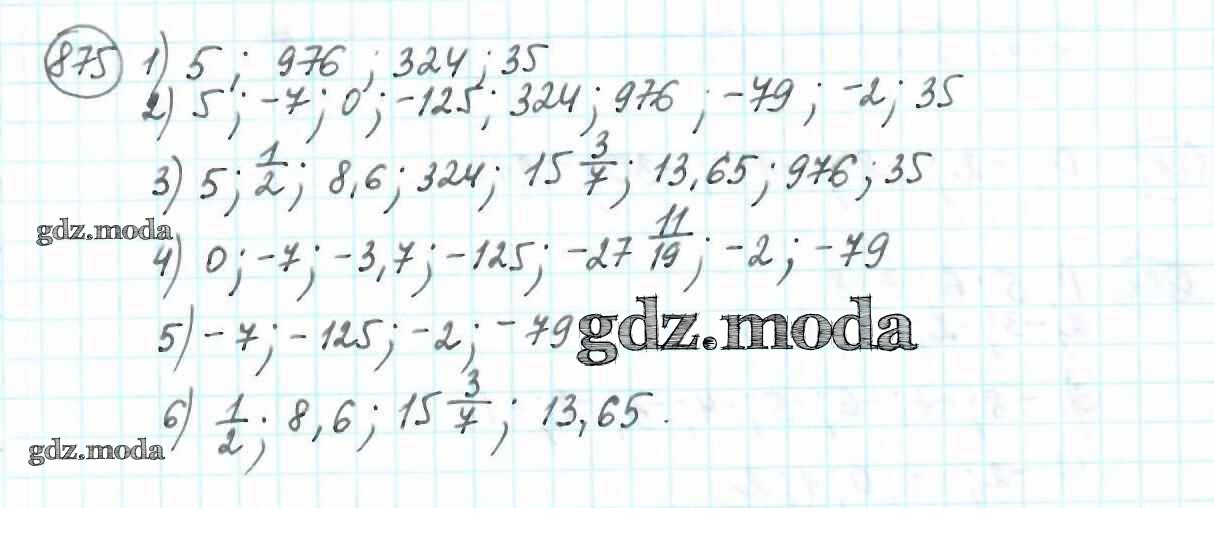 875 1) 5 ; 976 ; 324 ; 35
2) 5 ; -7 ; 0 ; -125 ; 324 ; 976 ; -79 ; -2 ; 35
3) 5 ; 1/2 ; 8,6 ; 324 ; 15 3/7 ; 13,65 ; 976 ; 35
gdz.moda
4) 0 ; -7 ; -3,7 ; -125 ; -27 11/19 ; -2 ; -79
5) -7 ; -125 ; -2 ; -79
gdz.moda
6) 1/2 ; 8,6 ; 15 3/7 ; 13,65.
gdz.moda